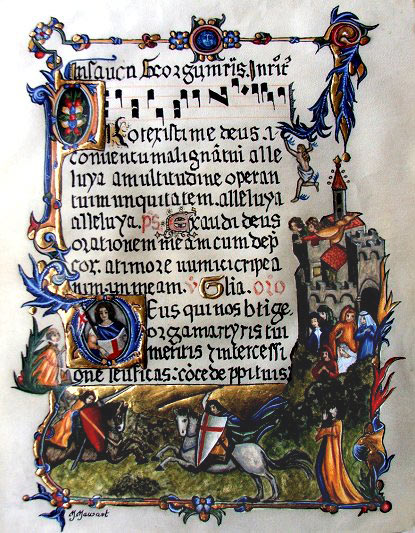 Protexisti me deus a
conventu malignātui alle
luya a multitudine operan
tium iniquitatem. alleluya
alleluya. ps. Exaudi deus
orationem meam cum dep̄
cor. a timore inimici eripe a
nimam meam. V Glia. oro
Deus qui nos bti ge
orgii martyris tui
meritis intercessi
one letificas: cōcede ppitius